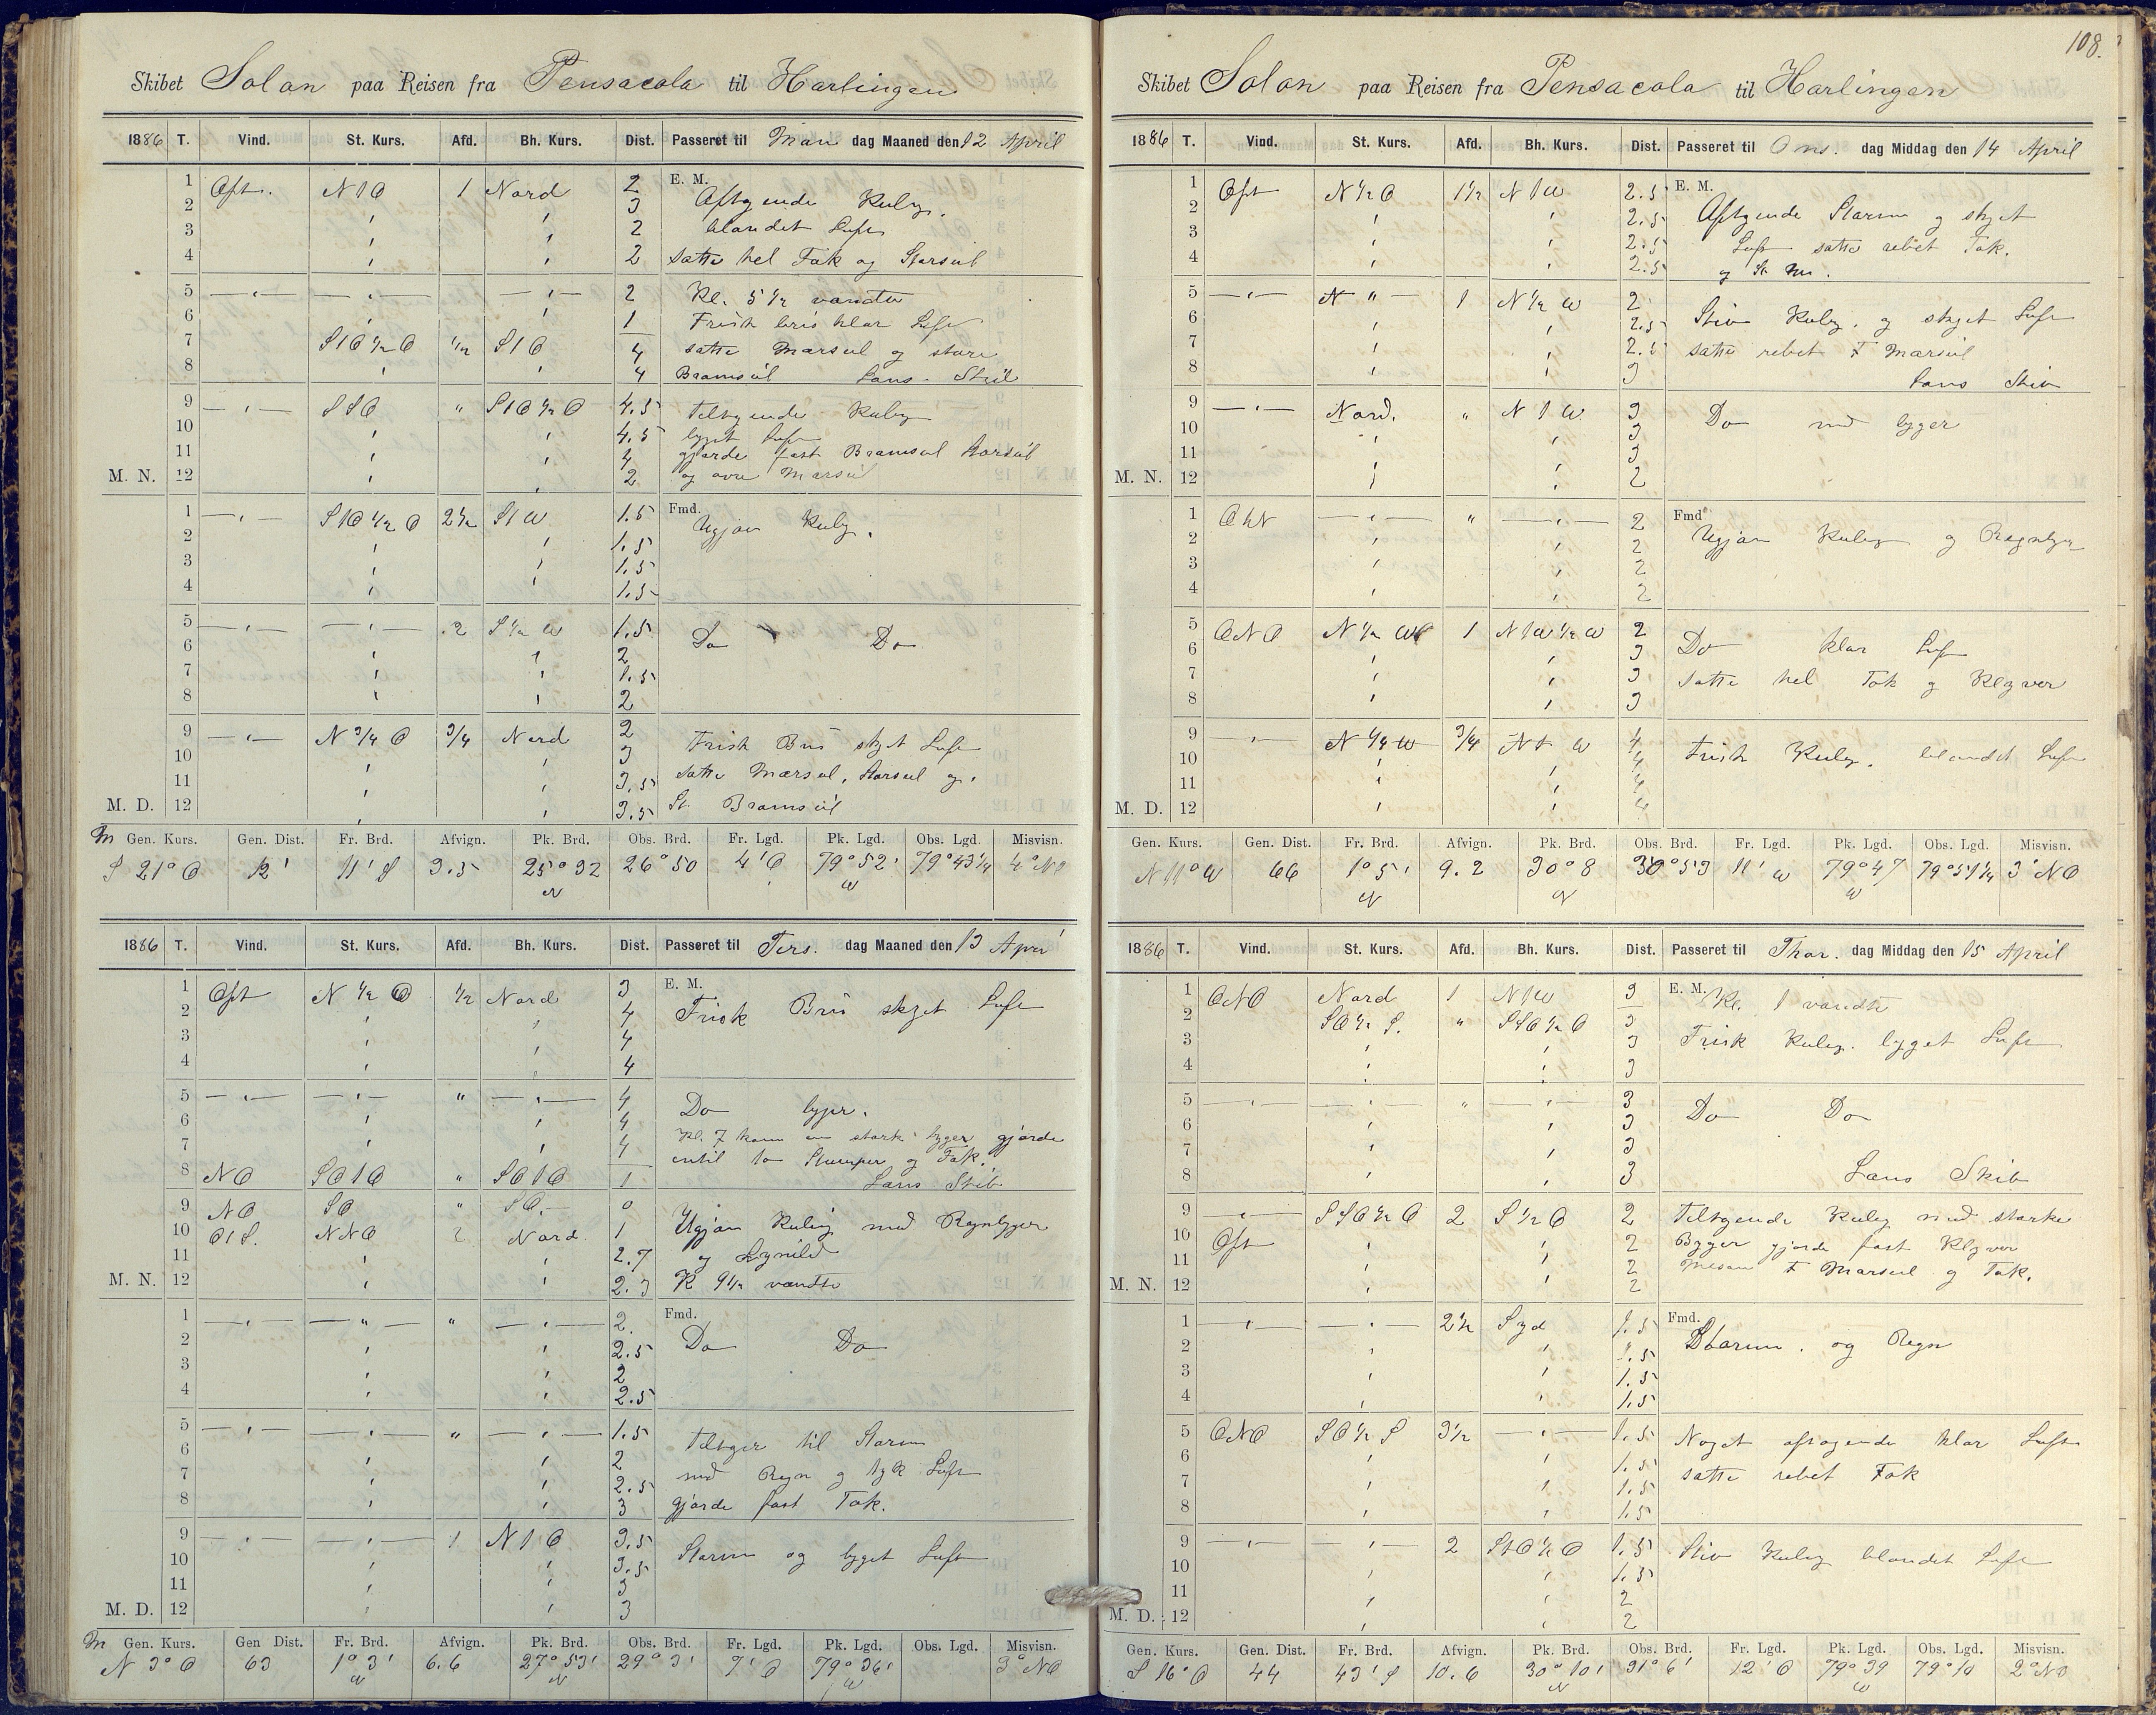 Skibet Solon paa Reisen fra Pensacola til Harlingen
1886 T. Vind. St. Kurs. Afd. Bh. Kurs. Dist. Passeret til Man dag Maaned den 12 April
1 Ost. N 1 O 1 Nord 2 E. M.
2 3 Aftgende Kulg.
3 2 blandet Luft
4 2 satte hel Fok og Storseil
5 2 Kl. 5 1/2 vandte
6 1 Frisk bris klar Luft
7 S 1 O 1/2 O 1/2 S 1 O 4 satte Marseil og store
8 4 Bramseil Lans. Skib
9 S S O " S 1 O 1/2 O 4.5 tiltgende Kulg
10 4.5 bygt Luft
11 4 gjorde fast Bramseil Storseil
M. N. 12 2 og øvre Marseil
1 S 1 O 1/2 O 2 1/2 S 1 W 1.5 Fmd.
2 1.5 Ugjøn Kulg.
3 1.5
4 1.5
5 2 S 1/2 W 1.5
6 2 Do Do
7 1.5
8 2
9 N 3/4 O 3/4 Nord 2
10 3 Frisk Bris skyet Luft
11 3.5 satte Marseil, Storseil og
M. D. 12 3.5 St. Bramseil
M Gen. Kurs. Gen. Dist. Fr. Brd. Afvign. Pk. Brd. Obs. Brd. Fr. Lgd. Pk. Lgd. Obs. Lgd. Misvisn.
S 21° O 12' 11' S 3.5 25° 32 N 26° 50 4' O 79° 52' W 79° 43 1/4 4° NO
1886 T. Vind. St. Kurs. Afd. Bh. Kurs. Dist. Passeret til Tirs. dag Maaned den 13 April
1 Ost N 1/2 O 1/2 Nord 3 E. M.
2 4 Frisk Bris skyet Luft
3 4
4 4
5 " 4
6 4 Do byger.
7 4 Kl. 7 kom en stærk byger gjorde
8 NO SO 1 O " SO 1 O 1 Lans Skib
9 NO SO " SO. 0
10 O 1 S. NNO 2 Nord 1 Ugjøn Kuling med Regnbyger
11 2.7 og Lynild
M. N. 12 2.3 K 9 1/2 vendte
1 " " 2. Fmd.
2 2.5 Do Do
3 2
4 2.5
5 " 1.5
6 2 tiltger til Storm
7 2.5 med Regn og tyk Luft
8 3 gjorde fast Fok.
9 1 N 1 O 3.5
10 3.5 Storm og byget Luft
11 3
M. D. 12 3
M Gen. Kurs. Gen Dist. Fr. Brd. Afvign. Pk. Brd. Obs. Brd. Fr. Lgd. Pk. Lgd. Obs. Lgd. Misvisn.
N 3° O 63 1° 3' N 6.6 27° 53' N 29° 3' 7' O 79° 36' W 3° NO
108.
Skibet Solon paa Reisen fra Pensacola til Harlingen
1886 T. Vind. St. Kurs. Afd. Bh. Kurs. Dist. Passeret til Ons. dag Middag den 14 April
1 Ost N 1/2 O 1 1/2 N 1 W 2.5 E. M.
2 2.5 Aftgende Storm og skyet
3 2.5 Luft satte rebet Fok.
4 2.5 og St. Ms.
5 N " 1 N 1/2 W 2
6 2.5 Stiv Kulg. og skyet Luft
7 2.5 satte rebet F Marseil
8 3 Lans Skib
9 Nord. " N 1 W 3 Do med byger
10 3
11 3
M. N. 12 2
1 O t N " 2 Fmd
2 2 Ugjøn Kulg og Regnbyer
3 2
4 2
5 ONO N 1/2 W 1 N 1 W 1/2 W 2
6 3 Do klar Luft
7 3 satte hel Fok og Klyver
8 3
9 N 1/4 W 3/4 N 1 W 4
10 4 Frisk Kulg. blandet Luft
11 4
M. D. 12 4
Gen. Kurs. Gen. Dist. Fr. Brd. Afvign. Pk. Brd. Obs. Brd. Fr. Lgd. Pk. Lgd. Obs. Lgd. Misvisn.
N 11° W 66 1° 5' N 9.2 30° 8 N 30° 53 11' W 79° 47 W 79° 51 1/4 3° NO
1886 T. Vind. St. Kurs. Afd. Bh. Kurs. Dist. Passeret til Thor. dag Middag den 15 April
1 ONO Nord 1 N 1 W 3 E. M. Kl. 1 vandte
2 SO 1/2 S. " SSO 1/2 O 3
3 3 Frisk Kulg. byget Luft
4 3
5 " 3
6 3 Do Do
7 3
8 3 Lans Skib
9 SSO 1/2 O 2 S 1/2 O 2 tiltgende Kulg med stærke
10 Ost 2 Byger gjorde fast Klyver
11 2 Mesan F Marseil og Fok.
M. N. 12 2
1 2 1/2 Syd 1.5 Fmd.
2 1.5 Storm. og Regn
3 1.5
4 1.5
5 ONO SO 1/2 S 3 1/2 1.5 Noget aftagende klar Luft
6 1.5 satte rebet Fok
7 1.5
8 1.5
9 2 S t O 1/2 O 1.5 Stiv Kulg blandet Luft
10 1.5
11 2
M. D. 12 2
Gen. Kurs. Gen. Dist. Fr. Brd. Afvign. Pk. Brd. Obs. Brd. Fr. Lgd. Pk. Lgd. Obs. Lgd. Misvisn.
S 16° O 44 43' S 10.6 30° 10' N 31° 6' 12' O 79° 39 W 79° 10 2° NO